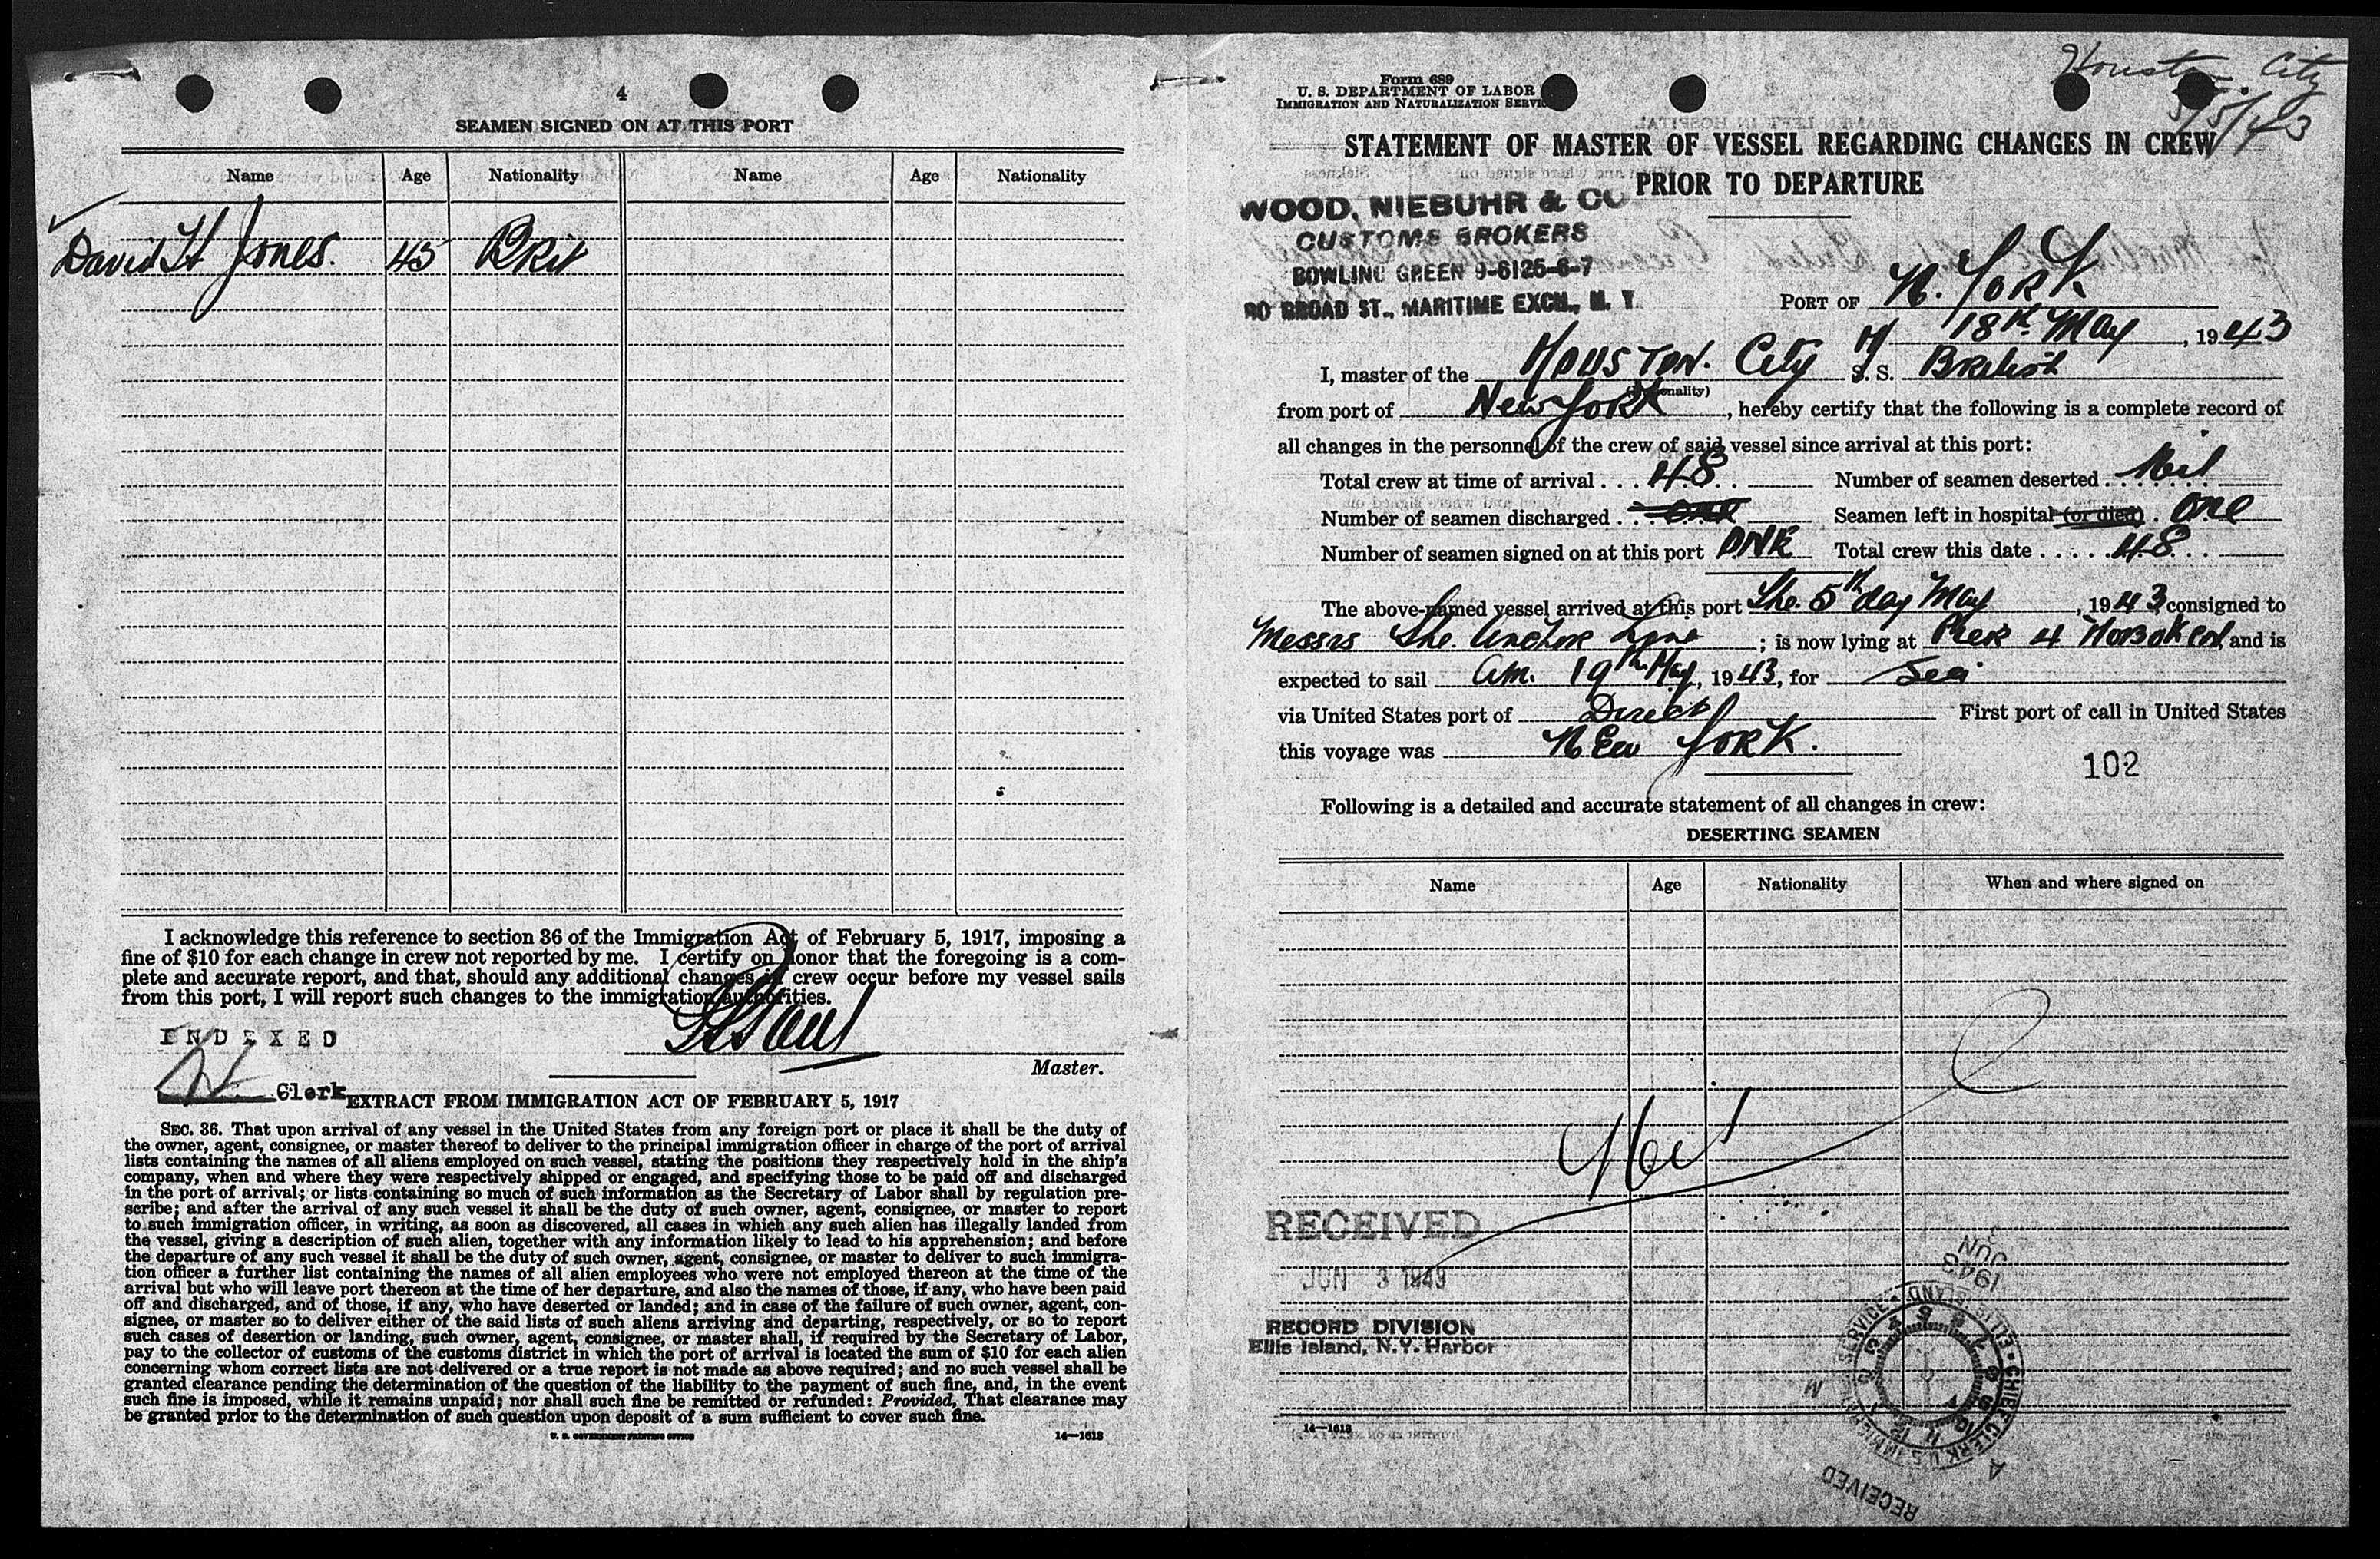 4
SEAMEN SIGNED ON AT THIS PORT
Name Age Nationality Name Age Nationality
David H Jones. 45 Brit
I acknowledge this reference to section 36 of the Immigration Act of February 5, 1917, imposing a
fine of $10 for each change in crew not reported by me. I certify on honor that the foregoing is a com-
plete and accurate report, and that, should any additional changes in crew occur before my vessel sails
from this port, I will report such changes to the immigration authorities.
INDEXED
Master.
Clerk
EXTRACT FROM IMMIGRATION ACT OF FEBRUARY 5, 1917
SEC. 36. That upon arrival of any vessel in the United States from any foreign port or place it shall be the duty of
the owner, agent, consignee, or master thereof to deliver to the principal immigration officer in charge of the port of arrival
lists containing the names of all aliens employed on such vessel, stating the positions they respectively hold in the ship's
company, when and where they were respectively shipped or engaged, and specifying those to be paid off and discharged
in the port of arrival; or lists containing so much of such information as the Secretary of Labor shall by regulation pre-
scribe; and after the arrival of any such vessel it shall be the duty of such owner, agent, consignee, or master to report
to such immigration officer, in writing, as soon as discovered, all cases in which any such alien has illegally landed from
the vessel, giving a description of such alien, together with any information likely to lead to his apprehension; and before
the departure of any such vessel it shall be the duty of such owner, agent, consignee, or master to deliver to such immigra-
tion officer a further list containing the names of all alien employees who were not employed thereon at the time of the
arrival but who will leave port thereon at the time of her departure, and also the names of those, if any, who have been paid
off and discharged, and of those, if any, who have deserted or landed; and in case of the failure of such owner, agent, con-
signee, or master so to deliver either of the said lists of such aliens arriving and departing, respectively, or so to report
such cases of desertion or landing, such owner, agent, consignee, or master shall, if required by the Secretary of Labor,
pay to the collector of customs of the customs district in which the port of arrival is located the sum of $10 for each alien
concerning whom correct lists are not delivered or a true report is not made as above required; and no such vessel shall be
granted clearance pending the determination of the question of the liability to the payment of such fine, and, in the event
such fine is imposed, while it remains unpaid; nor shall such fine be remitted or refunded: Provided, That clearance may
be granted prior to the determination of such question upon deposit of a sum sufficient to cover such fine.
U. S. GOVERNMENT PRINTING OFFICE 14—1613
Houston City
5/5/43
Form 689
U. S. DEPARTMENT OF LABOR
IMMIGRATION AND NATURALIZATION SERVICE
STATEMENT OF MASTER OF VESSEL REGARDING CHANGES IN CREW
PRIOR TO DEPARTURE
WOOD, NIEBUHR & CO
CUSTOMS BROKERS
BOWLING GREEN 9-6125-6-7
80 BROAD ST., MARITIME EXCH., N. Y.
PORT OF N. York
18th May, 1943
I, master of the Houston. City M/ S. S. British
(Nationality)
from port of New York, hereby certify that the following is a complete record of
all changes in the personnel of the crew of said vessel since arrival at this port:
Total crew at time of arrival . . . 48 Number of seamen deserted . Nil
Number of seamen discharged . . one Seamen left in hospital (or died) . One
Number of seamen signed on at this port ONE Total crew this date . . . . . 48
The above-named vessel arrived at this port The. 5th day May, 1943, consigned to
Messrs The. Anchor Line; is now lying at Pier 4 Hoboken, and is
expected to sail am. 19th May, 1943, for Sea
via United States port of Direct First port of call in United States
this voyage was New York.
102
Following is a detailed and accurate statement of all changes in crew:
DESERTING SEAMEN
Name Age Nationality When and where signed on
Nil
RECEIVED
JUN 3 1943
RECORD DIVISION
Ellis Island, N.Y. Harbor
1943
JUN 3
RECEIVED
14—1613